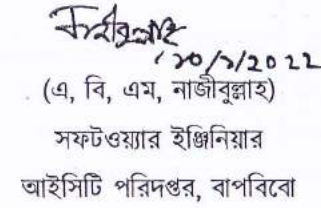 নাজীবুল্লাহ
১০/১/2022
(এ, বি, এম, নাজীবুল্লাহ)
সফটওয়্যার ইঞ্জিনিয়ার
আইসিটি পরিদপ্তর, বাপবিবো